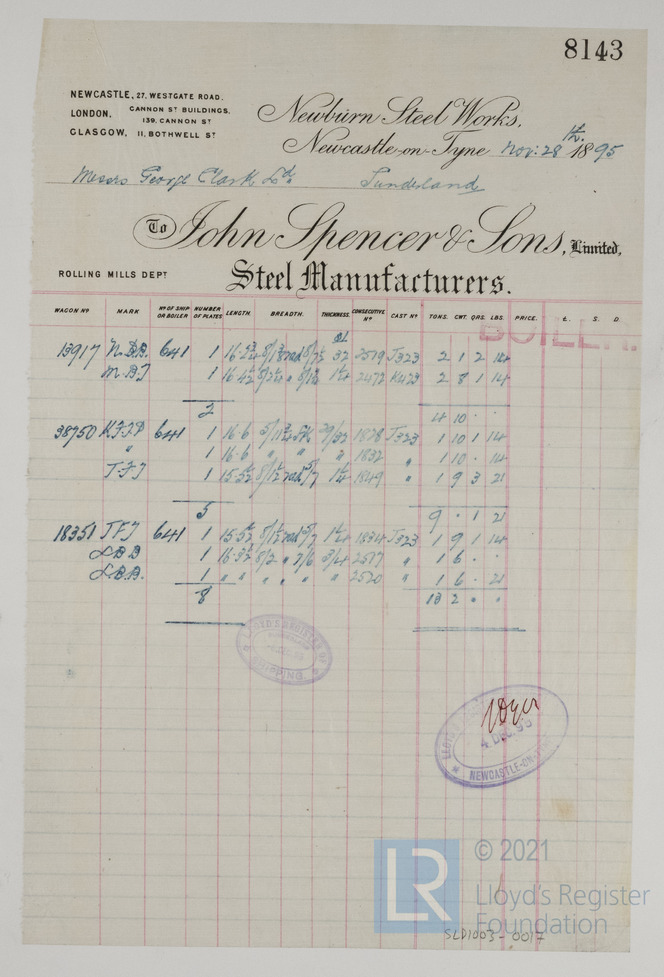 8143
NEWCASTLE, 27, WESTGATE ROAD.
LONDON, CANNON ST BUILDINGS, 139, CANNON ST
GLASGOW, 11, BOTHWELL ST
Newburn Steel Works,
Newcastle-on-Tyne Nov: 28th 1895
Messrs George Clark Ld Sunderland
To John Spencer & Sons, Limited,
ROLLING MILLS DEPT Steel Manufacturers.
WAGON No MARK No OF SHIP OR BOILER NUMBER OF PLATES LENGTH. BREADTH. THICKNESS. CONSECUTIVE No CAST No TONS. CWT. QRS. LBS. PRICE. £. S. D.
BOILER.
13917 641 1 32 2519 J323 2 1 2 14
1 1¼ 2472 K423 2 8 1 14
2 4 10 · ·
38750 641 1 16.6 29/32 1828 J323 1 10 1 14
" 1 16.6 " " " 1832 " 1 10 · 14
JFJ 1 1¼ 1849 " 1 9 3 21
5 9 · 1 21
18351 JFJ 641 1 1¼ 1834 J323 1 9 1 14
1 8/2 " 7/6 3/4 2517 " 1 6 · ·
1 " " " " " 2520 " 1 6 · 21
8 13 2 " "
LLOYD'S REGISTER OF SHIPPING.
4 DEC. 95
NEWCASTLE-ON-TYNE
LR
© 2021
Lloyd's Register
Foundation
SLD1003-0017